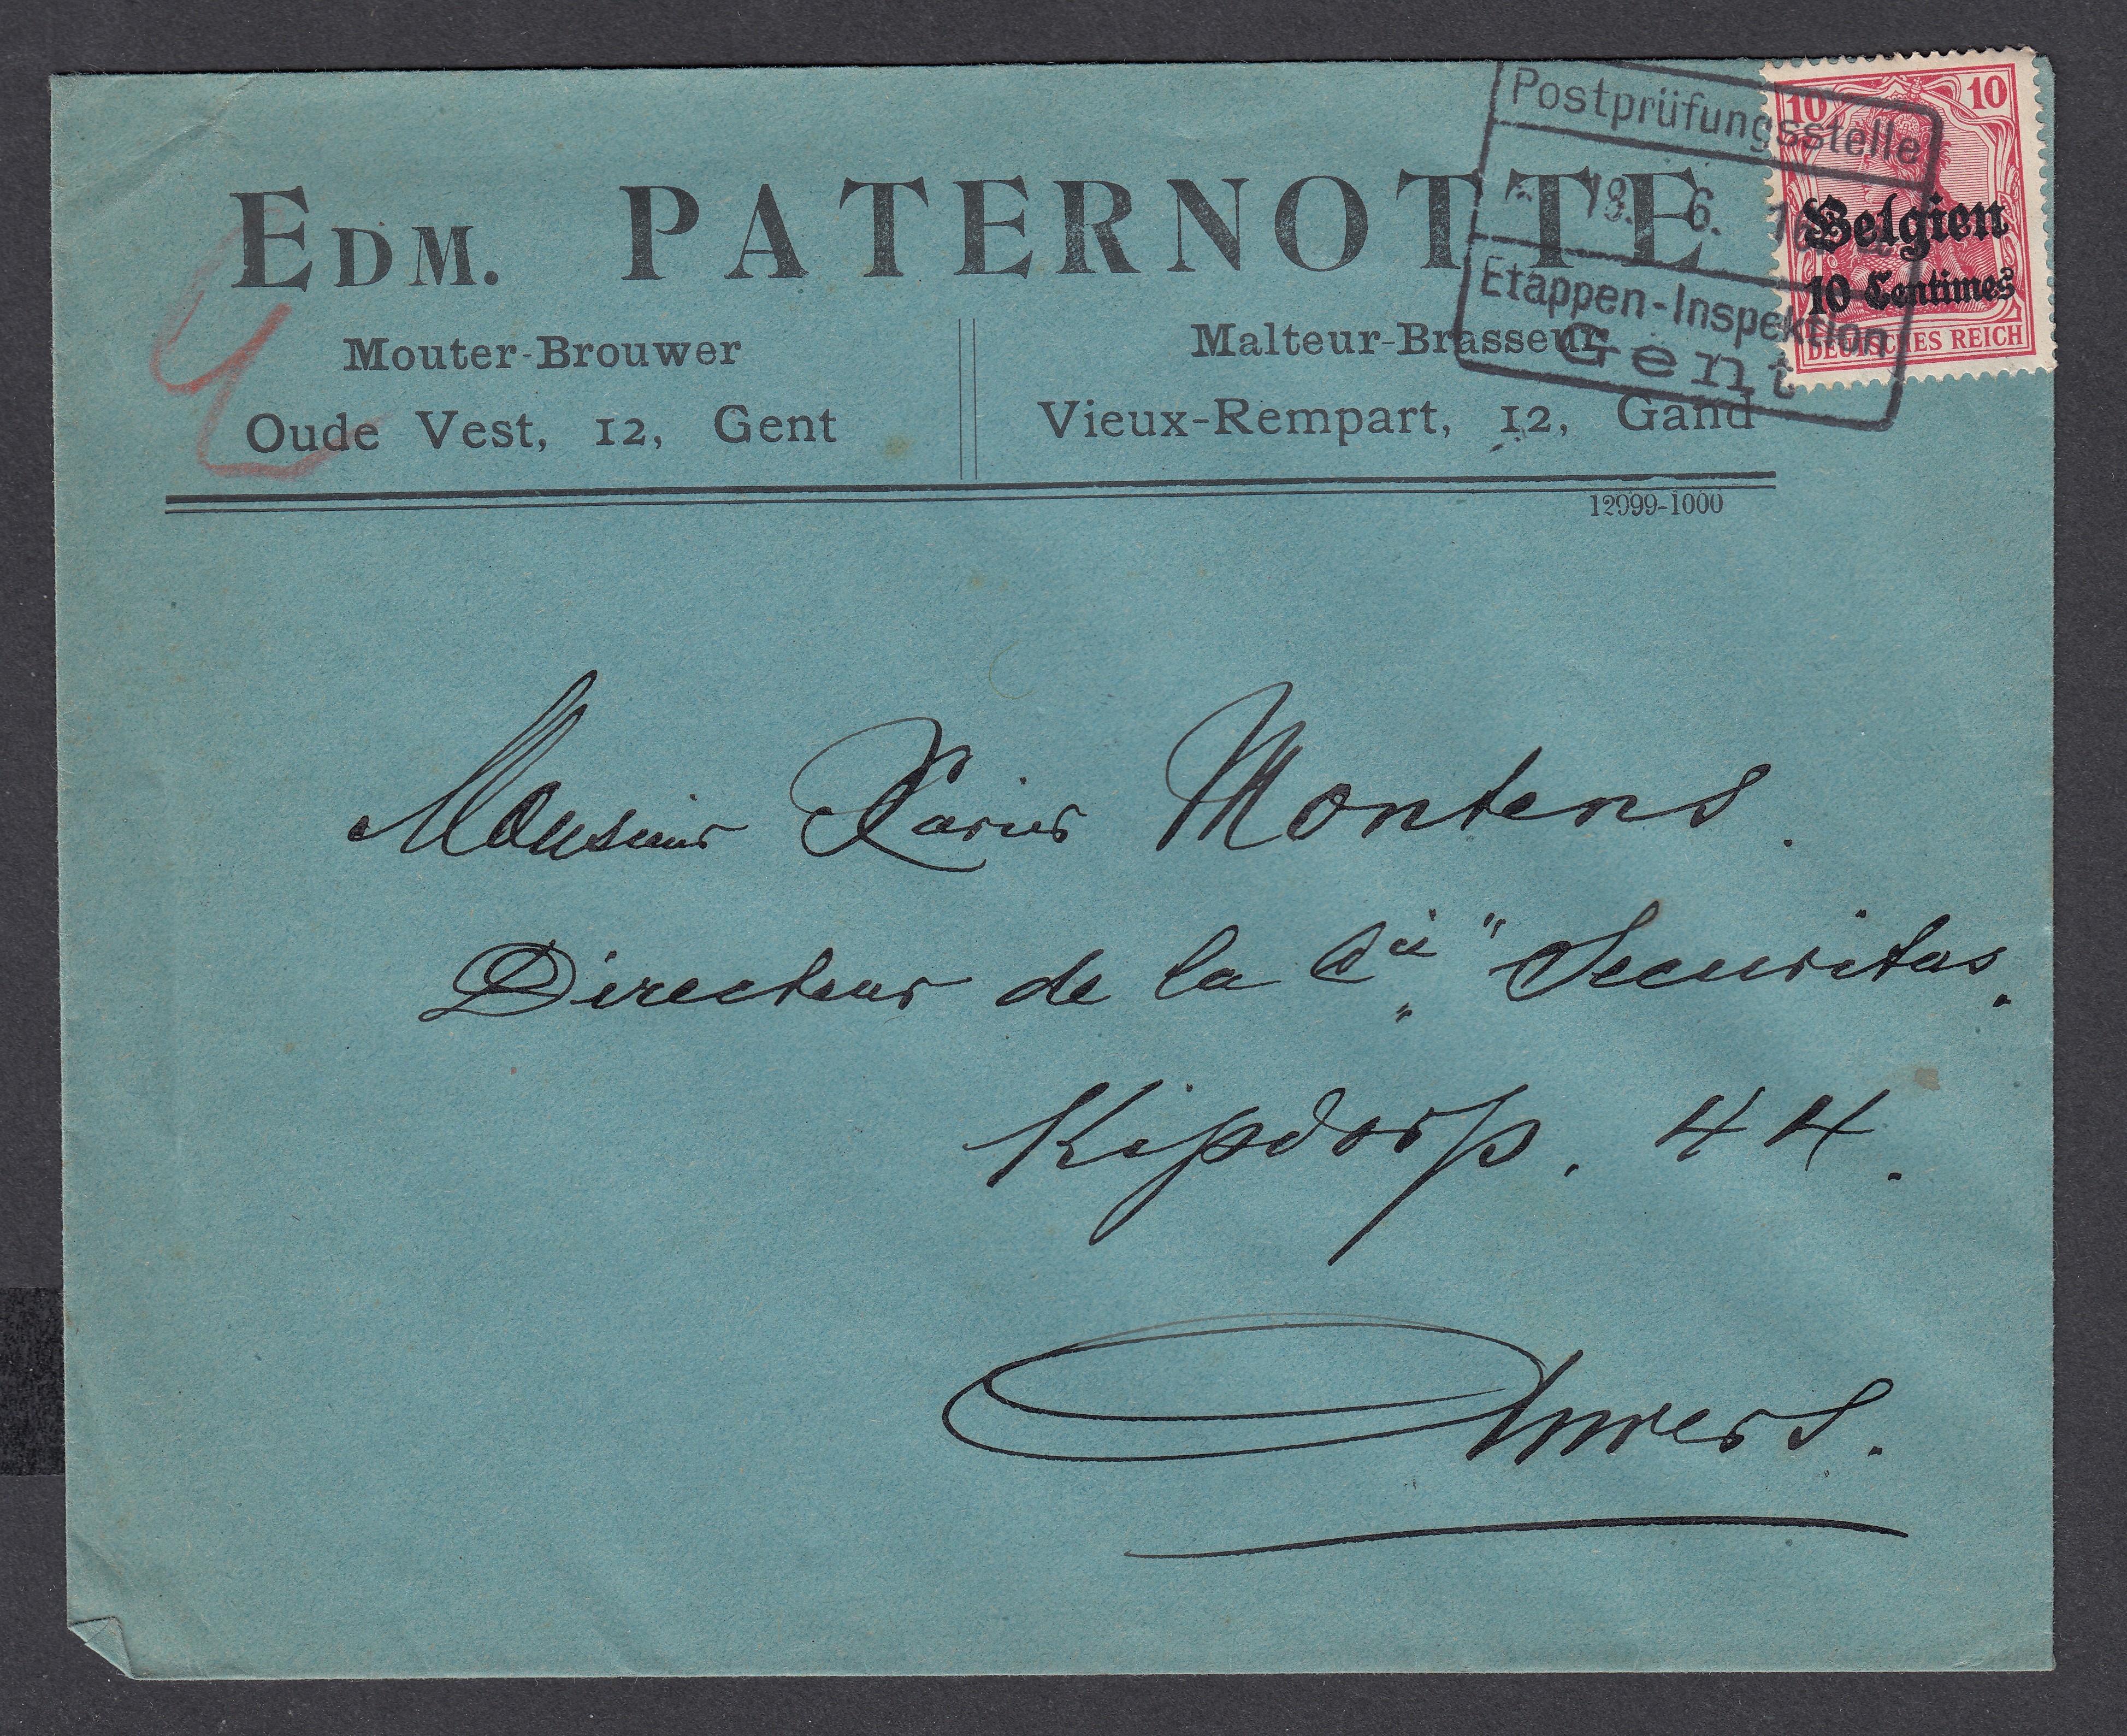 EDM. PATERNOTTE
Mouter-Brouwer
Oude Vest, 12, Gent
Malteur-Brasseur
Vieux-Rempart, 12, Gand
12999-1000
Postprüfungsstelle
6. 16
Etappen-Inspektion
Gent
10 10
Belgien
10 Centimes
DEUTSCHES REICH
Monsieur Xavier Montens.
Directeur de la Cie "Securitas„.
Kipdorp. 44.
Anvers.